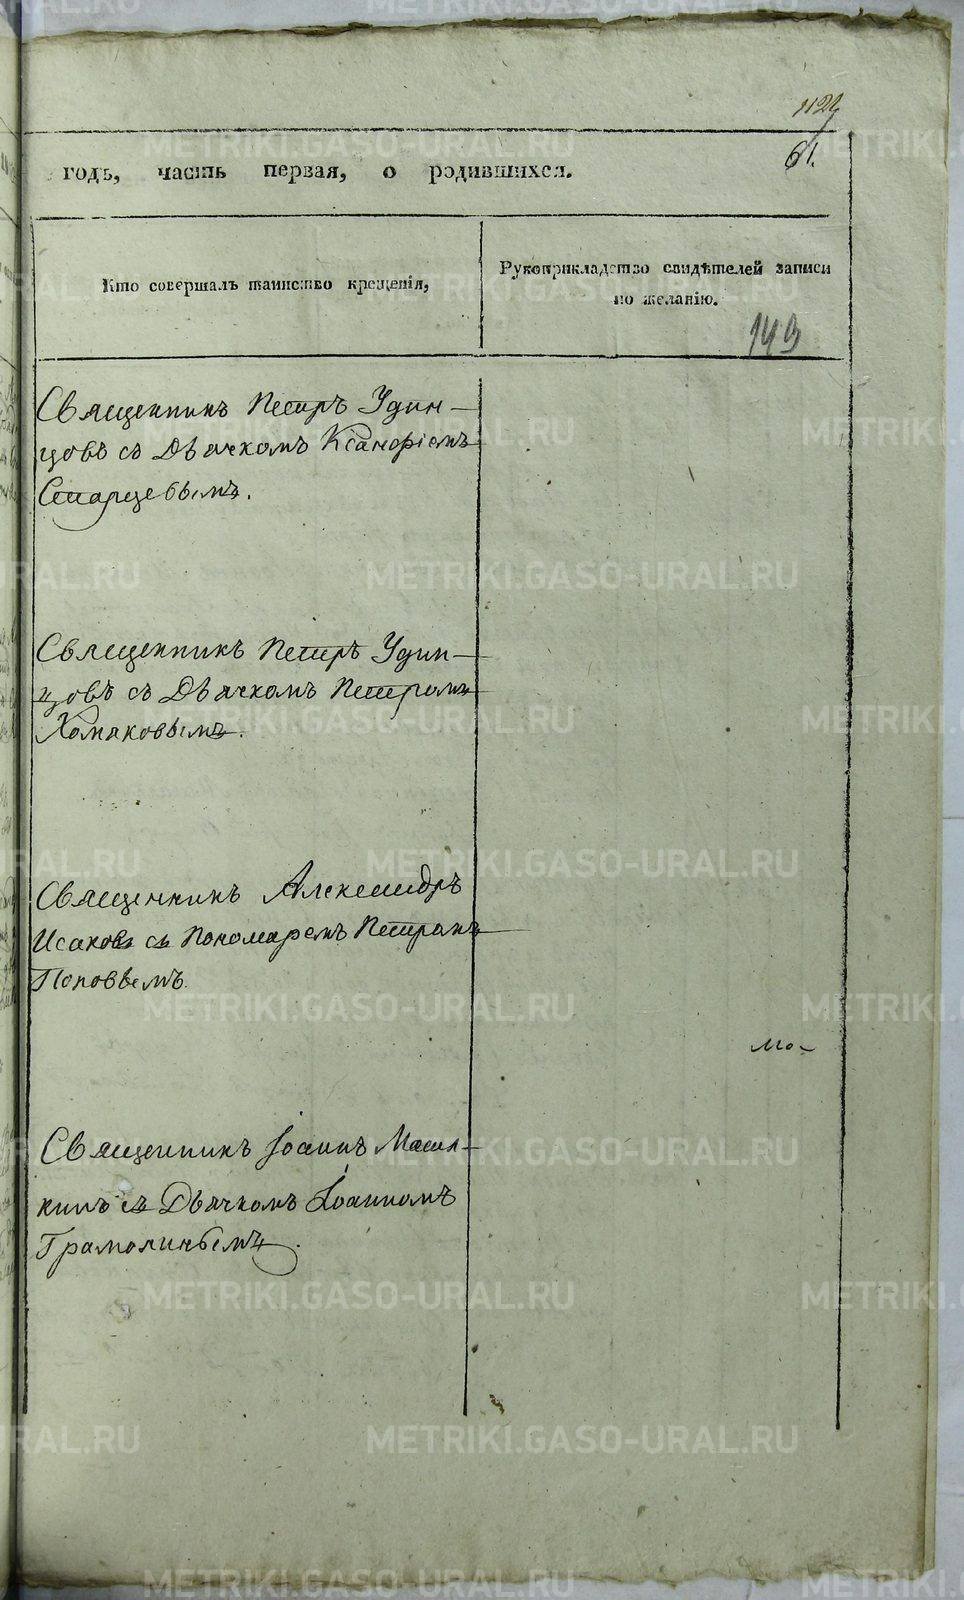 112
61.
годъ, часть первая, о родившихся.
Кто совершалъ таинство крещенія,
Рукоприкладство свидѣтелей записи
по желанію.
149
Священникъ Петръ Удин-
цовъ съ Дьячкомъ Ксанофіемъ
Старцевымъ.
Священникъ Петръ Удин-
цовъ съ Дьячкомъ Петромъ
Хомяковымъ.
Священникъ Александръ
Исаковъ съ Пономаремъ Петромъ
Поповымъ.
Мо-
Священникъ Іоаннъ
съ Дьячкомъ Іоанномъ
Грамолинымъ.
METRIKI.GASO-URAL.RU